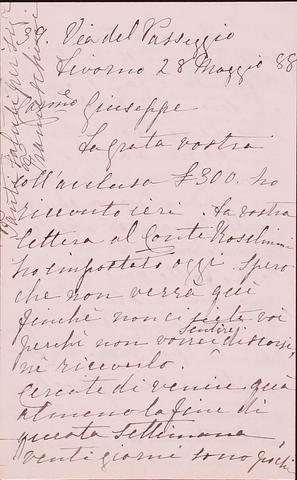 39. Via del Passeggio
Livorno 28 Maggio 88
Carmo Giuseppe
La grata vostra
coll'acclusa £300. ho
ricevuto ieri. La vostra
lettera al Conte
ho impostato oggi. Spero
che non verrà quì
finchè non ci siete voi
perchè non vorrei sentire discorsi,
nè riceverlo.
Cercate di venire quà
almeno la fine di
questa Settimana
venti giorni sono pochi
Tanti saluti